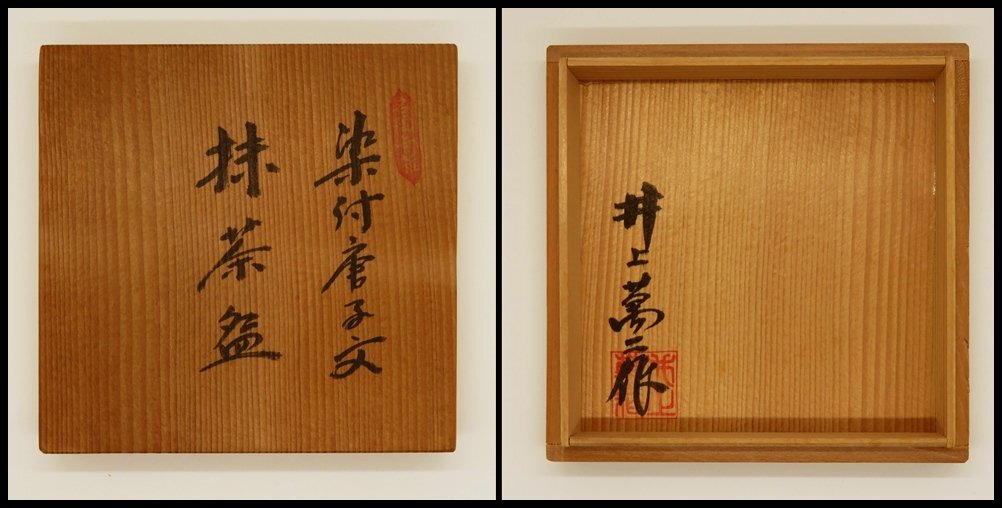 染付唐子文
抹茶盌
井上萬二作